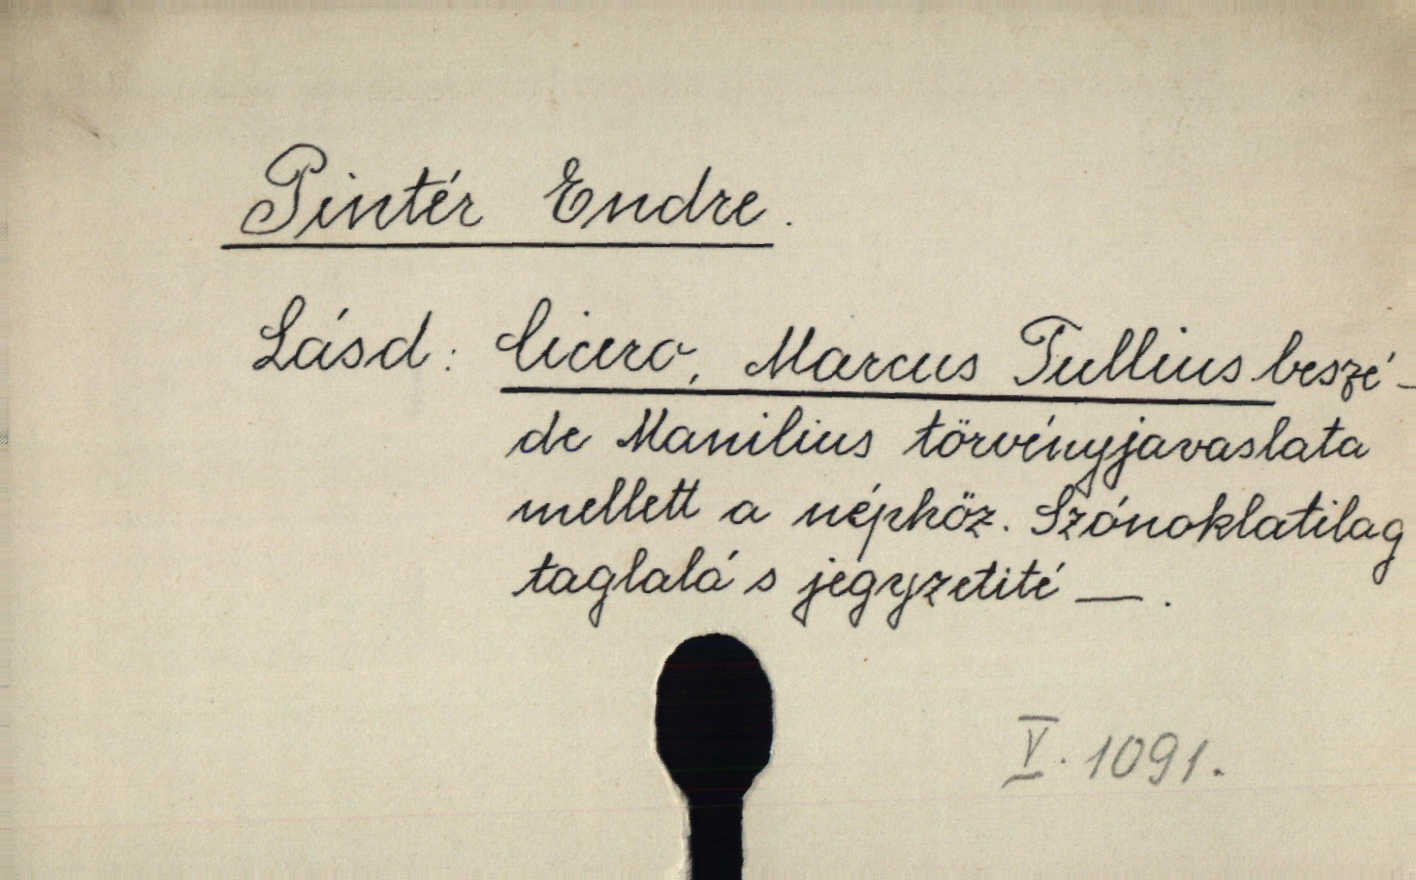 Pintér Endre.
Lásd: Cicero, Marcus Tullius beszé-
de Manilius törvényjavaslata
mellett a népköz. Szónoklatilag
taglalá s jegyzetité —.
V. 1091.